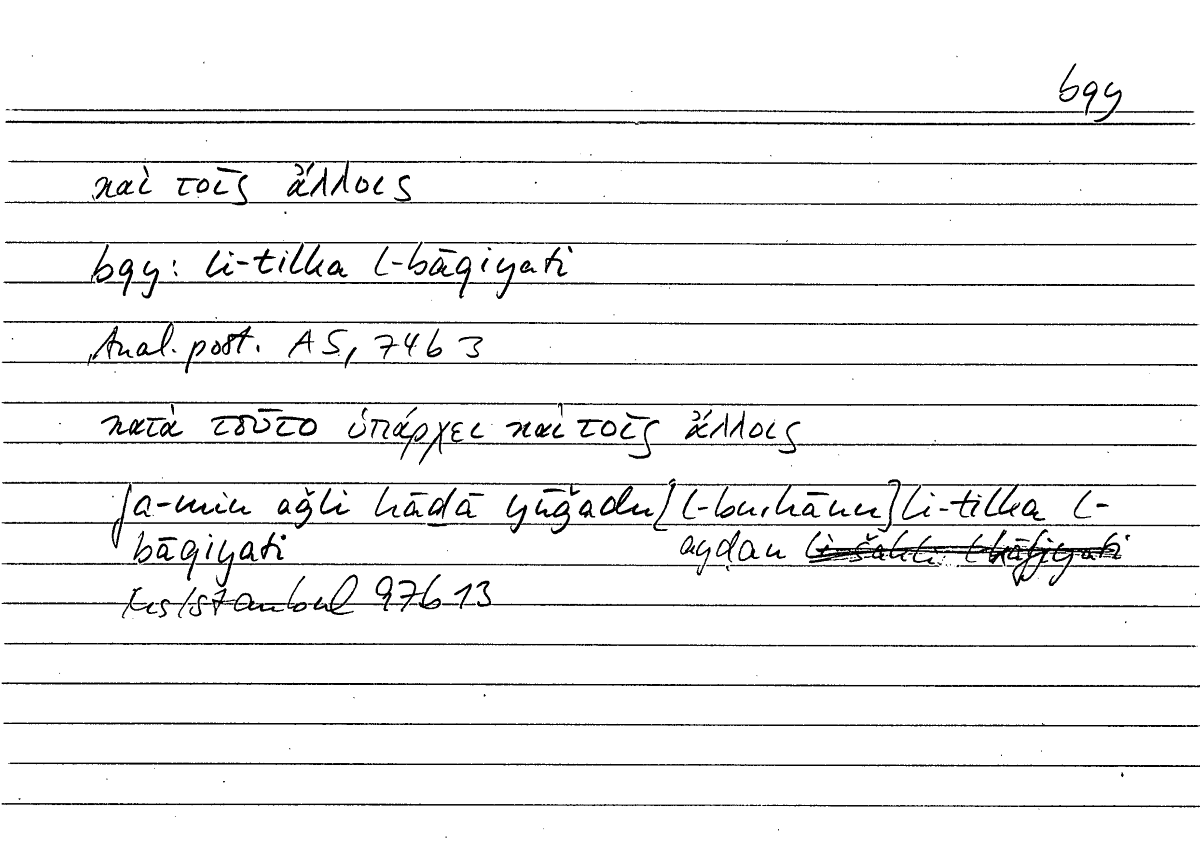 bqy
καὶ τοῖς ἄλλοις
bqy: li-tilka l-bāqiyati
Anal. post. A5, 74b 3
κατὰ τοῦτο ὑπάρχει καὶ τοῖς ἄλλοις
fa-min ağli hāḏā yūğadu [l-burhānu] li-tilka l-
bāqiyati ayḍan
Hs Istanbul 97b13